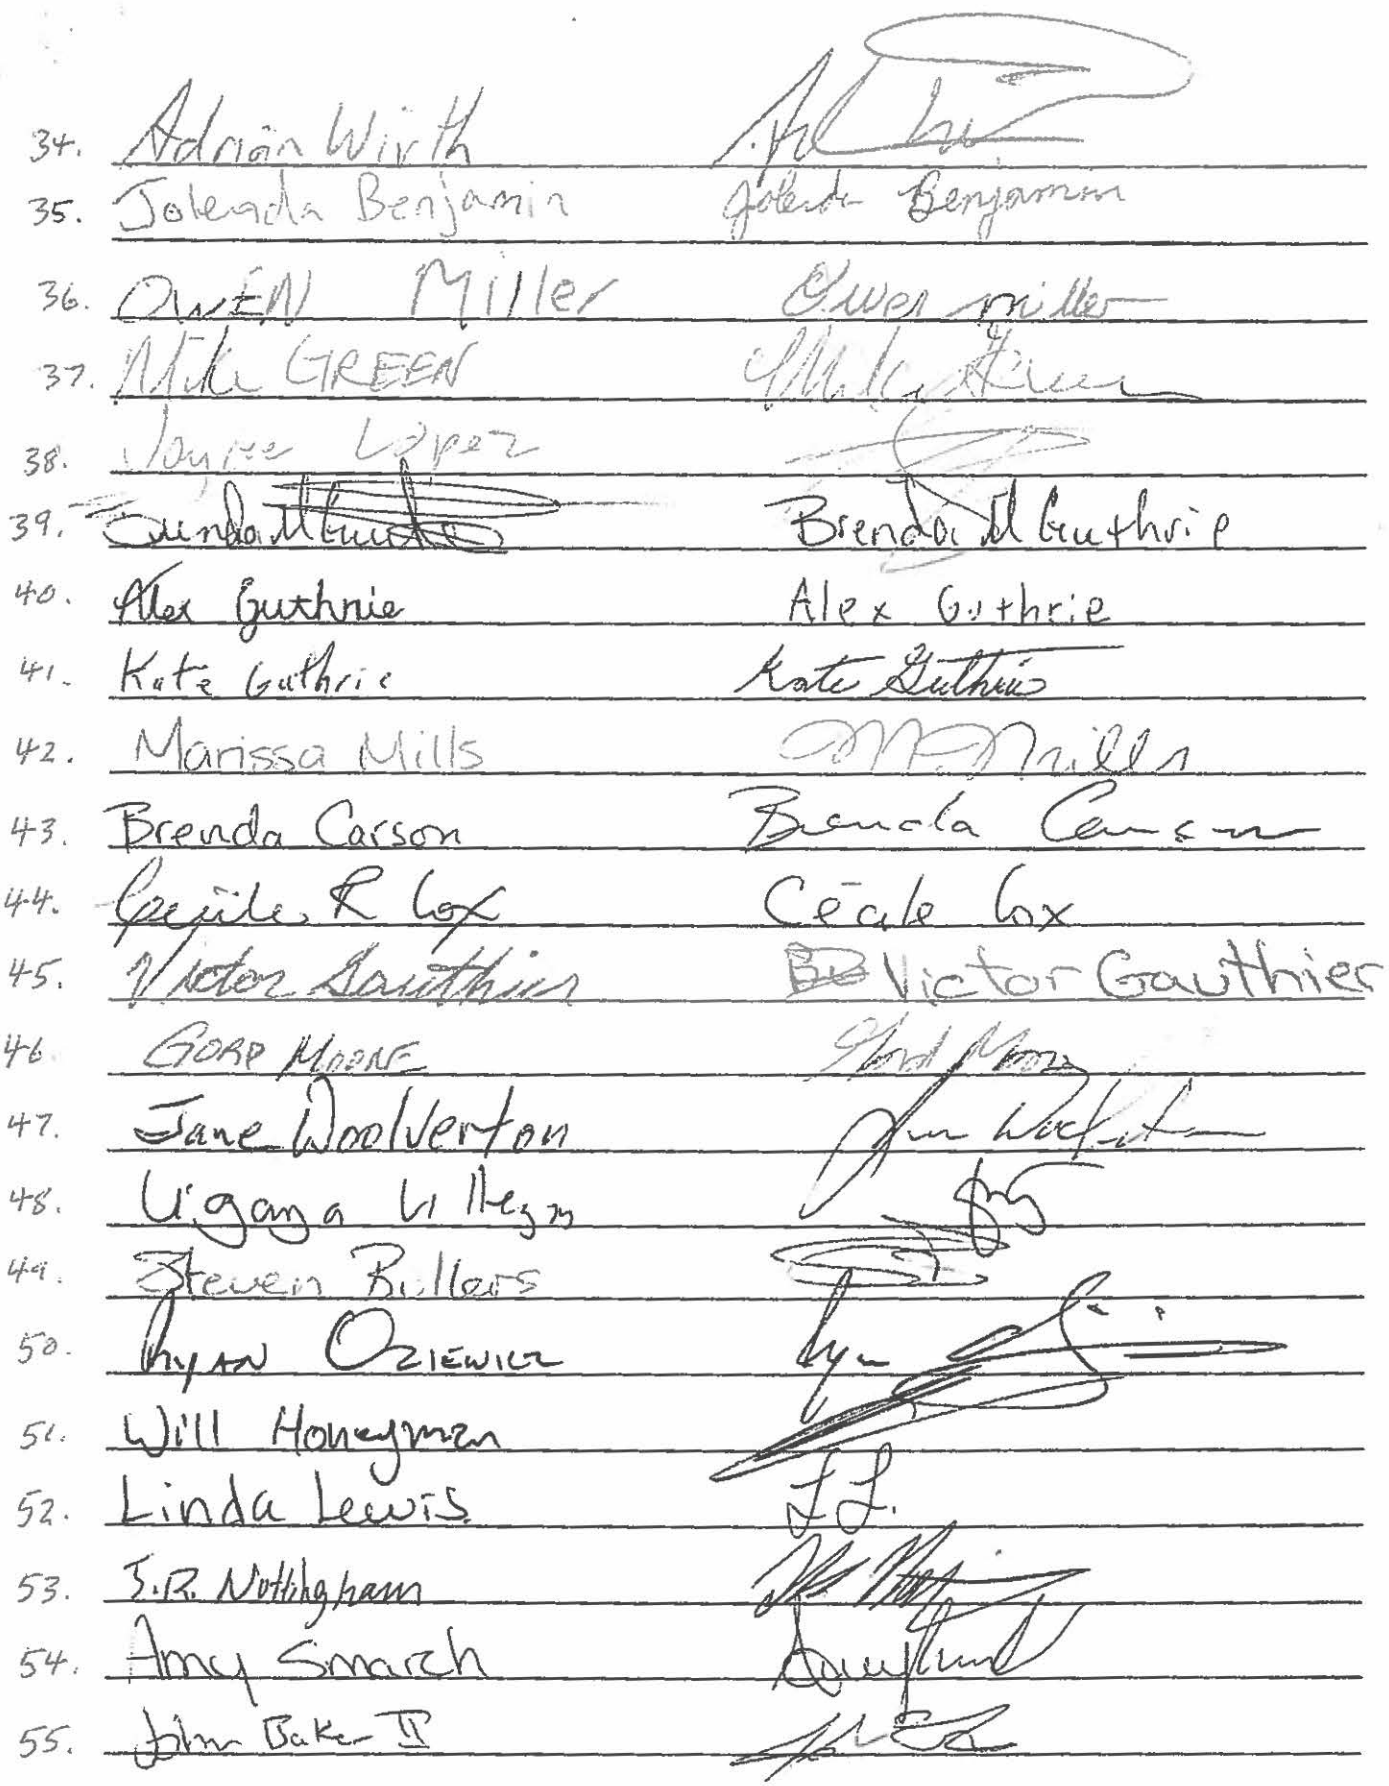 34. Adrian Wirth
35. Jolenda Benjamin Jolenda Benjamin
36. OWEN Miller Owen miller
37. Mike GREEN Mike Green
38. Jaynee Lopez
39. Brenda M Guthrie
40. Alex Guthrie Alex Guthrie
41. Kate Guthrie Kate Guthrie
42. Marissa Mills M. Mills
43. Brenda Carson Brenda Carson
44. Cécile R Cox Cécile Cox
45. Victor Gauthier Victor Gauthier
46 GORD MOORE Gord Moore
47. Jane Woolverton
48.
49. Steven Bullers
50. RYAN OZIEWICZ Ryan
51. Will Honeyman
52. Linda Lewis L L.
53. J.R. Nottingham
54. Amy Smarch
55. John Baker II